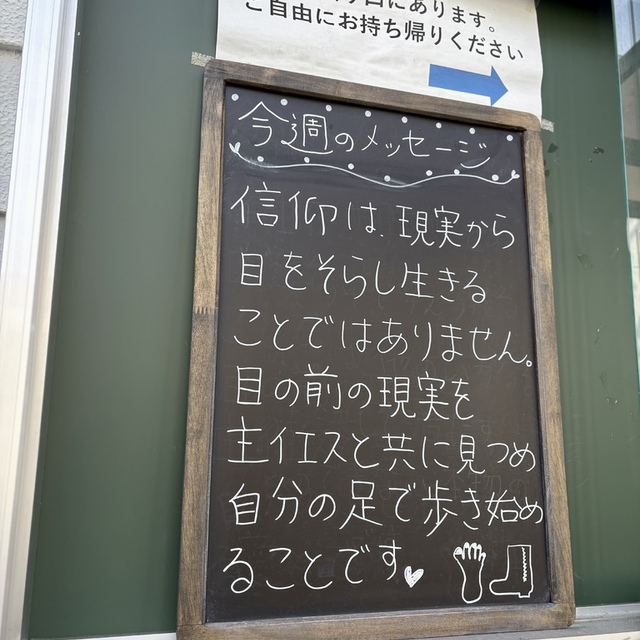 にあります。
ご自由にお持ち帰りください
今週のメッセージ
信仰は、現実から
目をそらし生きる
ことではありません。
目の前の現実を
主イエスと共に見つめ
自分の足で歩き始め
ることです